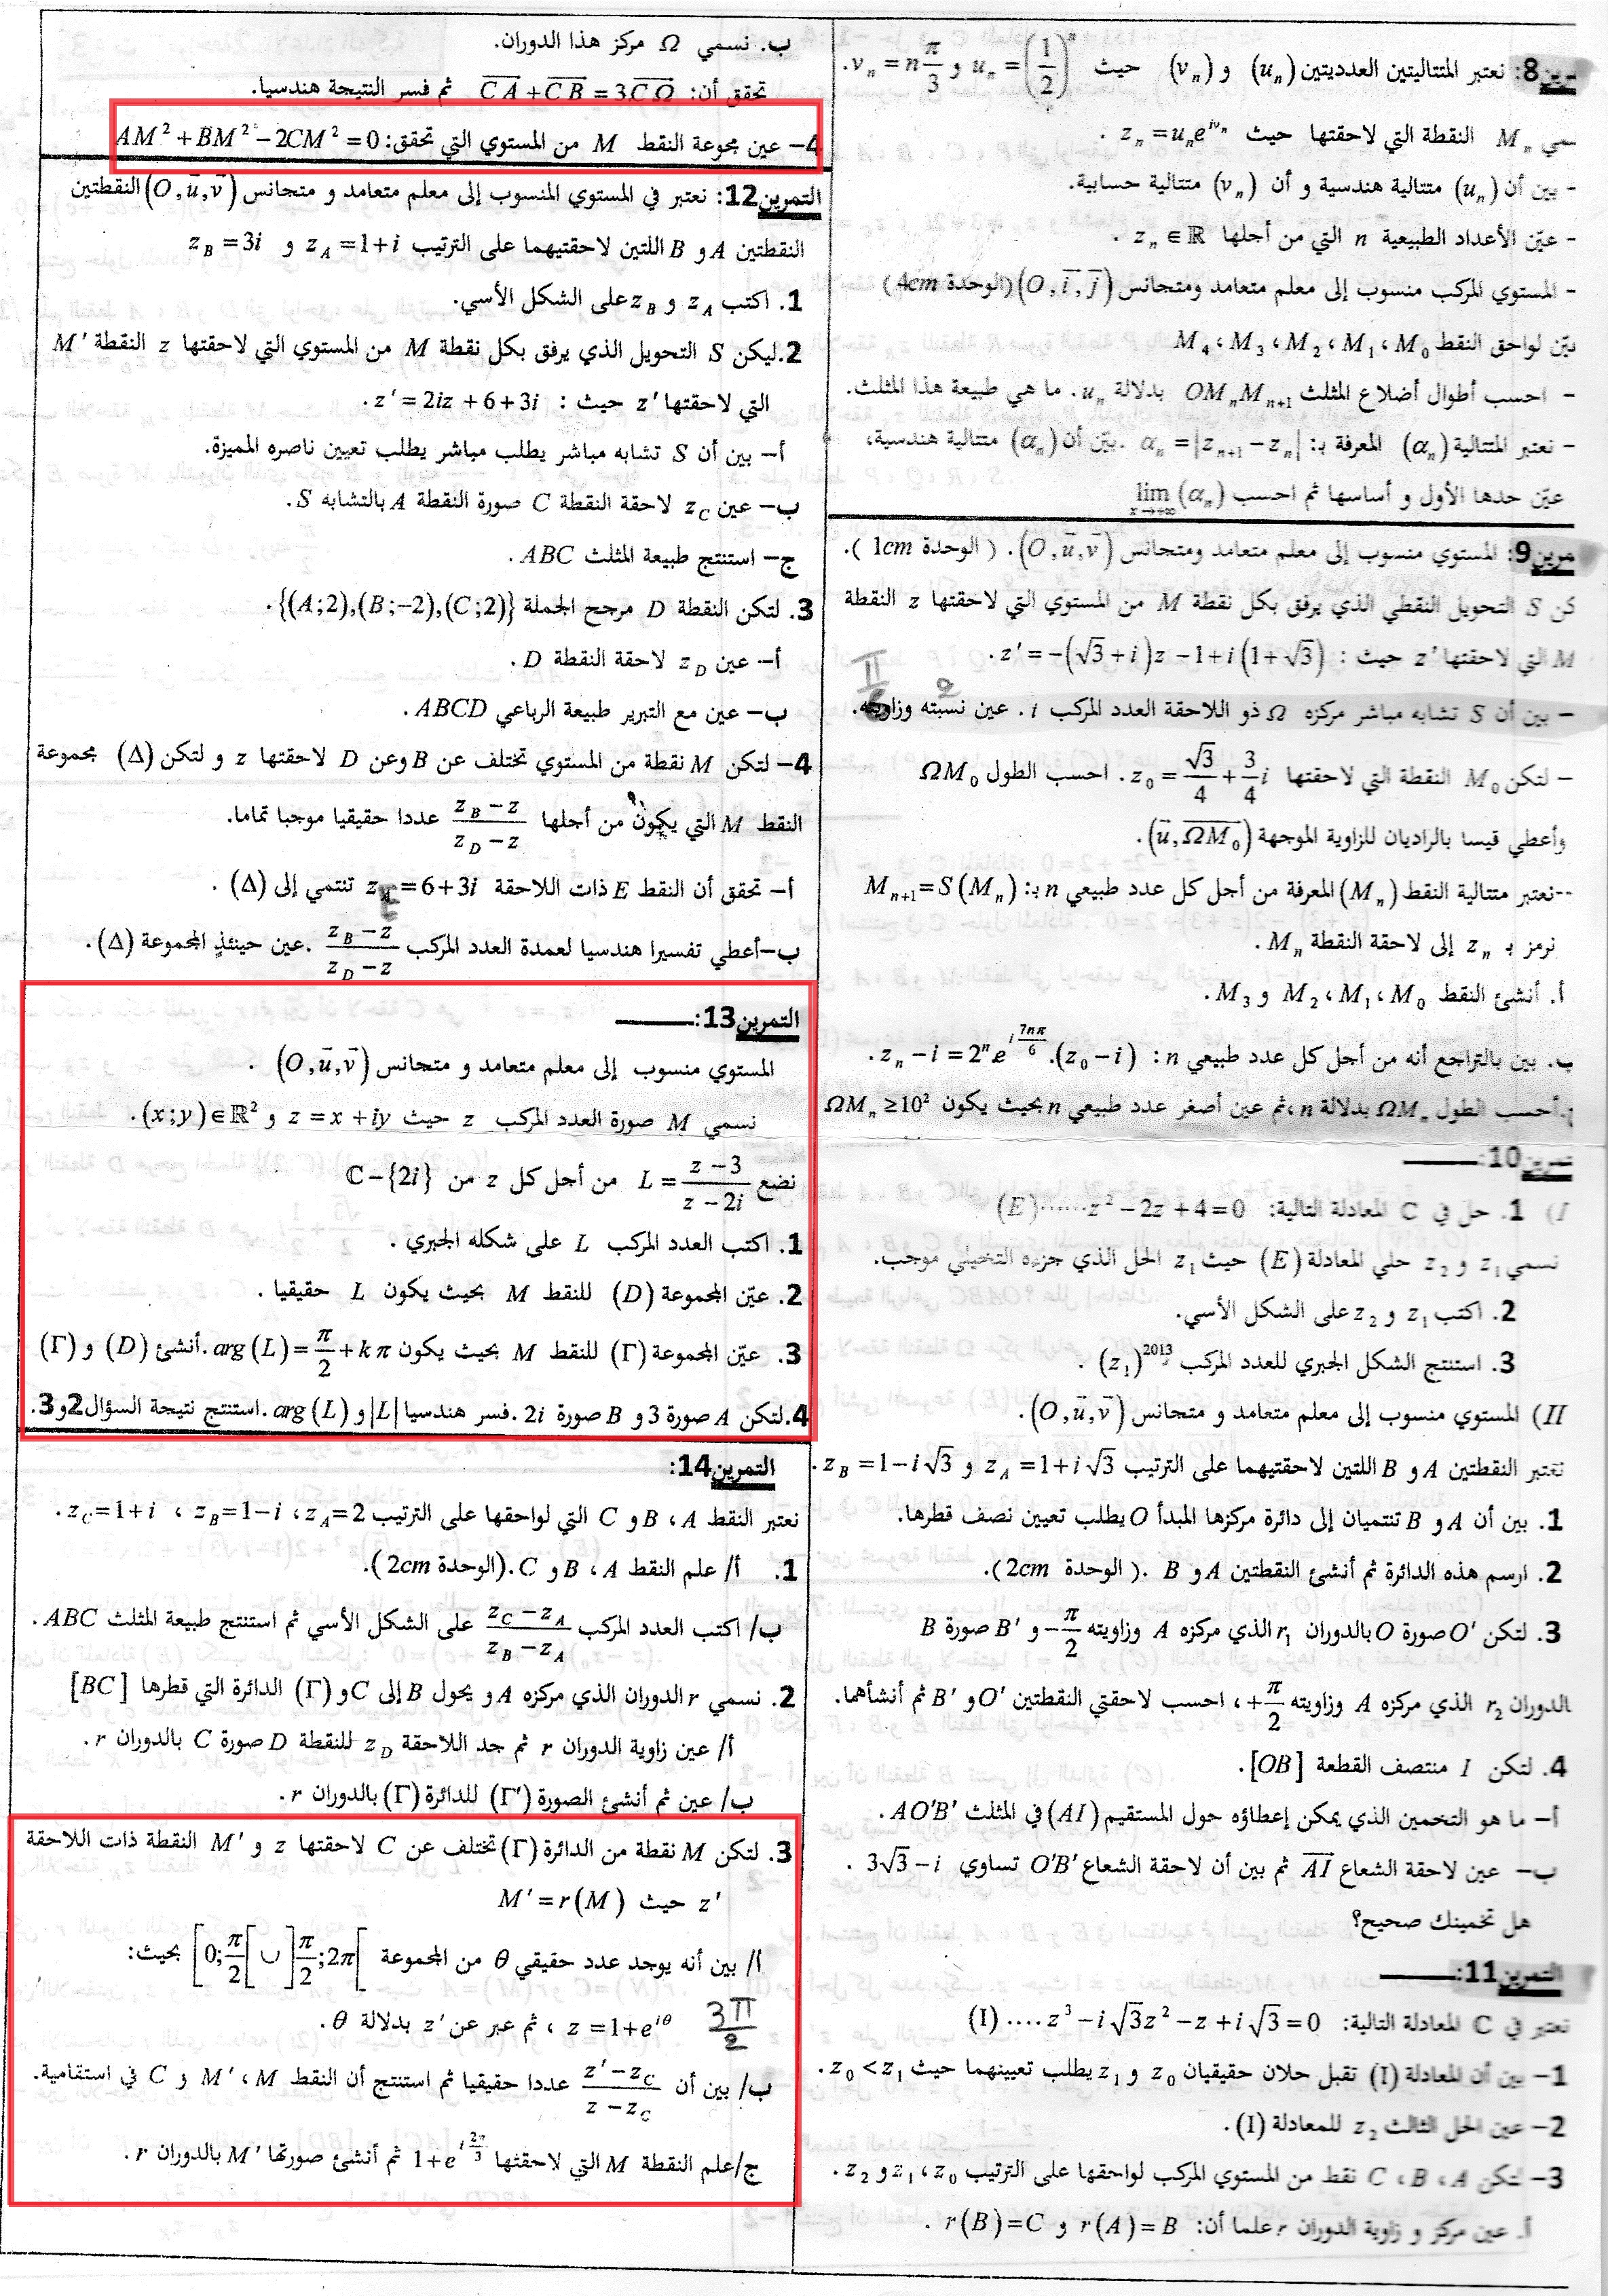 8: نعتبر المتتاليتين العدديتين (u_n) و (v_n) حيث u_n = (1/2)^n و v_n = n π/3.
M_n النقطة التي لاحقتها حيث z_n = u_n e^{iv_n} .
- بين أن (u_n) متتالية هندسية و أن (v_n) متتالية حسابية.
- عيّن الأعداد الطبيعية n التي من أجلها z_n ∈ ℝ .
- المستوي المركب منسوب إلى معلم متعامد ومتجانس (O, i, j) (الوحدة 4cm)
لواحق النقط M_0 ، M_1 ، M_2 ، M_3 ، M_4
- احسب أطوال أضلاع المثلث OM_nM_{n+1} بدلالة u_n. ما هي طبيعة هذا المثلث.
- نعتبر المتتالية (α_n) المعرفة بـ: α_n = |z_{n+1} - z_n| .بيّن أن (α_n) متتالية هندسية،
عيّن حدها الأول و أساسها ثم احسب lim_{x→+∞} (α_n)
9: المستوي منسوب إلى معلم متعامد ومتجانس (O, u, v). ( الوحدة 1cm ).
S التحويل النقطي الذي يرفق بكل نقطة M من المستوي التي لاحقتها z النقطة
التي لاحقتها z' حيث : z' = -(√3 + i)z - 1 + i(1 + √3) .
- بين أن S تشابه مباشر مركزه Ω ذو اللاحقة العدد المركب i. عين نسبته وزاويته.
2
π/6
- لتكن M_0 النقطة التي لاحقتها z_0 = √3/4 + 3/4 i. احسب الطول ΩM_0
وأعطي قيسا بالراديان للزاوية الموجهة (u, ΩM_0).
--نعتبر متتالية النقط (M_n) المعرفة من أجل كل عدد طبيعي n بـ: M_{n+1} = S(M_n)
نرمز بـ z_n إلى لاحقة النقطة M_n .
أ. أنشئ النقط M_0 ، M_1 ، M_2 و M_3.
ب. بين بالتراجع أنه من أجل كل عدد طبيعي n : z_n - i = 2^n e^{i7nπ/6}.(z_0 - i) .
أحسب الطول ΩM_n بدلالة n، ثم عين أصغر عدد طبيعي n بحيث يكون ΩM_n ≥ 10²
10:
I) 1. حل في C المعادلة التالية: z² - 2z + 4 = 0......(E)
نسمي z_1 و z_2 حلي المعادلة (E) حيث z_1 الحل الذي جزءه التخيلي موجب.
2. اكتب z_1 و z_2 على الشكل الأسي.
3. استنتج الشكل الجبري للعدد المركب (z_1)^{2013} .
II) المستوي منسوب إلى معلم متعامد و متجانس (O, u, v).
نعتبر النقطتين A و B اللتين لاحقتيهما على الترتيب z_A = 1 + i√3 و z_B = 1 - i√3 .
1. بين أن A و B تنتميان إلى دائرة مركزها المبدأ O يطلب تعيين نصف قطرها.
2. ارسم هذه الدائرة ثم أنشئ النقطتين A و B .( الوحدة 2cm).
3. لتكن O' صورة O بالدوران r_1 الذي مركزه A وزاويته -π/2 و B' صورة B
الدوران r_2 الذي مركزه A وزاويته +π/2، احسب لاحقتي النقطتين O' و B' ثم أنشأهما.
4. لتكن I منتصف القطعة [OB].
أ- ما هو التخمين الذي يمكن إعطاؤه حول المستقيم (AI) في المثلث AO'B' .
ب- عين لاحقة الشعاع AI ثم بين أن لاحقة الشعاع O'B' تساوي 3√3 - i .
هل تخمينك صحيح؟
التمرين11:
نعتبر في C المعادلة التالية: z³ - i√3z² - z + i√3 = 0 ....(I)
1- بين أن المعادلة (I) تقبل حلان حقيقيان z_0 و z_1 يطلب تعيينهما حيث z_0 < z_1 .
2- عين الحل الثالث z_2 للمعادلة (I).
3- لتكن A ، B ، C نقط من المستوي المركب لواحقها على الترتيب z_0 ، z_1 و z_2 .
أ. عين مركز و زاوية الدوران r علما أن: r(A) = B و r(B) = C .
ب. نسمي Ω مركز هذا الدوران.
تحقق أن: CA + CB = 3CΩ ثم فسر النتيجة هندسيا.
4- عين مجوعة النقط M من المستوي التي تحقق: AM² + BM² - 2CM² = 0
التمرين12: نعتبر في المستوي المنسوب إلى معلم متعامد و متجانس (O, u, v) النقطتين
النقطتين A و B اللتين لاحقتيهما على الترتيب z_A = 1 + i و z_B = 3i
1. اكتب z_A و z_B على الشكل الأسي.
2. ليكن S التحويل الذي يرفق بكل نقطة M من المستوي التي لاحقتها z النقطة M'
التي لاحقتها z' حيث : z' = 2iz + 6 + 3i .
أ- بين أن S تشابه مباشر يطلب مباشر يطلب تعيين ناصره المميزة.
ب- عين z_C لاحقة النقطة C صورة النقطة A بالتشابه S .
ج- استنتج طبيعة المثلث ABC .
3. لتكن النقطة D مرجح الجملة {(A;2),(B;-2),(C;2)} .
أ- عين z_D لاحقة النقطة D .
ب- عين مع التبرير طبيعة الرباعي ABCD .
4- لتكن M نقطة من المستوي تختلف عن B وعن D لاحقتها z و لتكن (Δ) مجموعة
النقط M التي يكون من أجلها (z_B - z)/(z_D - z) عددا حقيقيا موجبا تماما.
أ- تحقق أن النقط E ذات اللاحقة z_E = 6 + 3i تنتمي إلى (Δ) .
ب-أعطي تفسيرا هندسيا لعمدة العدد المركب (z_B - z)/(z_D - z) .عين حينئذٍ المجموعة (Δ).
التمرين13:
المستوي منسوب إلى معلم متعامد و متجانس (O, u, v) .
نسمي M صورة العدد المركب z حيث z = x + iy و (x;y) ∈ ℝ² .
نضع L = (z - 3)/(z - 2i) من أجل كل z من ℂ - {2i}
1. اكتب العدد المركب L على شكله الجبري .
2. عيّن المجموعة (D) للنقط M بحيث يكون L حقيقيا .
3. عيّن المجموعة (Γ) للنقط M بحيث يكون arg(L) = π/2 + kπ .أنشئ (D) و (Γ)
4.لتكن A صورة 3 و B صورة 2i .فسر هندسيا |L| و arg(L) .استنتج نتيجة السؤال 2 و 3.
التمرين14:
نعتبر النقط A ، B و C التي لواحقها على الترتيب z_A = 2 ، z_B = 1 - i ، z_C = 1 + i .
1. أ/ علم النقط A ، B و C .(الوحدة 2cm).
ب/ اكتب العدد المركب (z_C - z_A)/(z_B - z_A) على الشكل الأسي ثم استنتج طبيعة المثلث ABC .
2. نسمي r الدوران الذي مركزه A و يحول B إلى C و (Γ) الدائرة التي قطرها [BC]
أ/ عين زاوية الدوران r ثم جد اللاحقة z_D للنقطة D صورة C بالدوران r .
ب/ عين ثم أنشئ الصورة (Γ') للدائرة (Γ) بالدوران r .
3. لتكن M نقطة من الدائرة (Γ) تختلف عن C لاحقتها z و M' النقطة ذات اللاحقة
z' حيث M' = r(M)
أ/ بين أنه يوجد عدد حقيقي θ من المجموعة [0;π/2[ ∪ ]π/2;2π[ بحيث:
z = 1 + e^{iθ} ، ثم عبر عن z' بدلالة θ .
3π/2
ب/ بين أن (z' - z_C)/(z - z_C) عددا حقيقيا ثم استنتج أن النقط M ، M' و C في استقامية.
ج/علم النقطة M التي لاحقتها 1 + e^{i2π/3} ثم أنشئ صورتها M' بالدوران r .